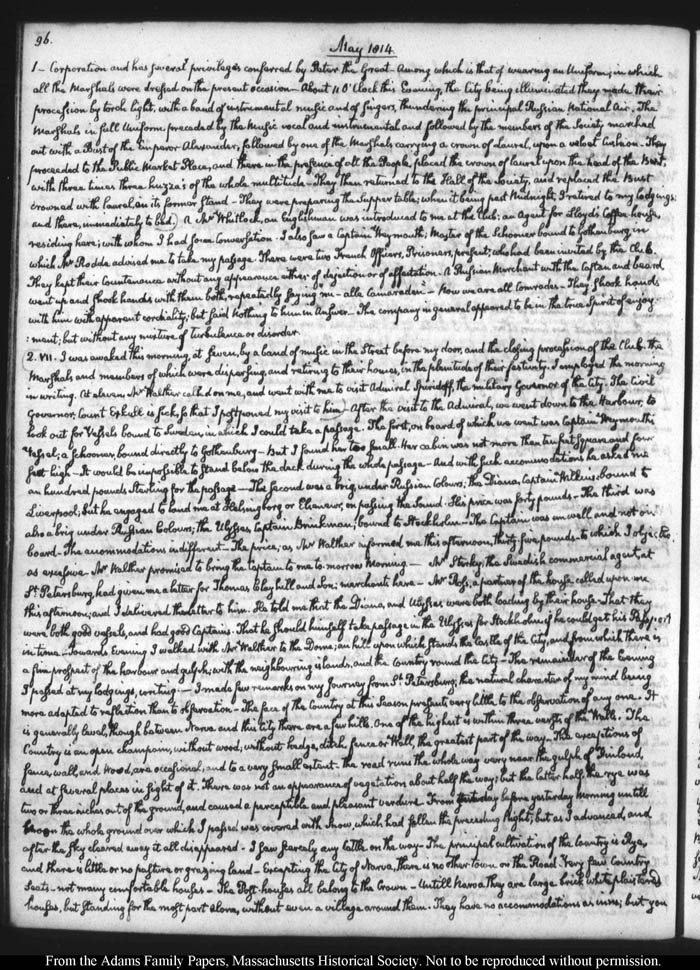 96.
May 1814.
1 — Corporation and has several privileges conferred by Peter the Great. Among which is that of wearing an Uniform; in which
all the Marshals were dressed on the present occasion — About 11 O'Clock this Evening, the City being illuminated they made their
procession by torch light, with a band of instrumental music and of singers, thundering the principal Russian National air. The
Marshals in full Uniform preceded by the Music vocal and instrumental and followed by the members of the Society marched
out with a Bust of the Emperor Alexander, followed by one of the Marshals carrying a crown of Laurel, upon a velvet Cushion — They
proceeded to the Public Market Place, and there in the presence of all the People, placed the crown of laurel upon the head of the Bust,
with three times three huzzas of the whole multitude — They then returned to the Hall of the Society, and replaced the Bust
crowned with laurel, on its former stand — They were preparing the Supper table; when it being past Midnight, I retired to my lodgings:
and there, immediately to bed. A Mr Whitlock, an Englishman was introduced to me at the Club: an Agent for Lloyd's Coffee house,
residing here; with whom I had some Conversation. I also saw a Captain Weymouth, Master of the Schooner bound to Gothenburg, in
which Mr Rodde advised me to take my passage. There were two French Officers, Prisoners, present, who had been invited by the Club.
They kept their Countenance without any appearance either of dejection or of affectation. A Russian Merchant with the Caftan and beard
went up and shook hands with them both, repeatedly saying nu — alle Camaraden — Now we are all Comrades — They shook hands
with him with apparent cordiality; but said Nothing to him in Answer — The company in general appeared to be in the true Spirit of enjoy-
:ment; but without any mixture of turbulence or disorder.
2. VII. I was awaked this morning, at seven, by a band of music in the Street before my door, and the closing procession of the Club. the
Marshals and members of which were dispersing, and returning to their homes, in the plenitude of their festivity. I employed the morning
in writing. At eleven Mr Walther called on me, and went with me to visit Admiral Spiridoff, the military Governor of the City. The Civil
Governor, Count is sick, so that I postponed my visit to him — After the visit to the Admiral, we went down to the Harbour, to
look out for Vessels bound to Sweden, in which I could take a passage. The first, on board of which we went was Captain Weymouth's
Vessel; a Schooner, bound directly to Gothenburg — But I found her too small. Her cabin was not more than ten feet square and four
feet high — It would be impossible to stand below the deck during the whole passage — And with such accommodations he asked me
an hundred pounds Sterling for the passage — The second was a brig, under Russian Colours; the Diana, Captain Wilkins; bound to
Liverpool; but he engaged to land me at Helsingborg or Elsineur, on passing the Sound. His price was forty pounds — The third was
also a brig under Russian Colours; the Ulysses, Captain Brinkman; bound to Stockholm — The Captain was unwell and not on
board — The accommodations indifferent — The price, as Mr Walther informed me this afternoon, thirty five pounds — to which I objected
as excessive. Mr Walther promised to bring the Captain to me to-morrow Morning — Mr Sterky, the Swedish commercial agent, at
St Petersburg, had given me a letter for Thomas Clayhills and Son; merchants here — Mr Ross, a partner of the house, called upon me
this afternoon; and I delivered the letter to him. He told me that the Diana, and Ulysses were both loading by their house — That they
were both good vessels, and had good Captains. That he should himself take passage in the Ulysses for Stockholm if he could get his Passport
in time — Towards Evening I walked with Mr Walther to the Dome; an hill upon which stands the Castle of the City, and from which there is
a fine prospect of the harbour and gulph; with the neighbouring islands, and the Country round the City — The remainder of the Evening
I passed at my lodgings, writing. — I made few remarks on my Journey from St Petersburg; the natural character of my mind being
more adapted to reflection than to observation — The face of the Country at this Season presents very little to the observation of any one. It
is generally level, though between Narva and this City there are a few hills. One of the highest is within three wersts of the Walls. The
Country is an open champain, without wood, without hedge, ditch, fence or Wall, the greatest part of the way. The exceptions of
fence, wall, and Wood, are occasional, and to a very small extent. The road runs the whole way very near the gulph of Finland,
and at several places in sight of it. There was not an appearance of vegetation about half the way; but the latter half, the rye was
two or three inches out of the ground, and caused a perceptible and pleasant verdure. From yesterday before yesterday morning untill
Noon the whole ground over which I passed was covered with Snow, which had fallen the preceding Night; but as I advanced, and
after the sky cleared away it all disappeared — I saw scarcely any Cattle on the way — The principal cultivation of the Country is Rye,
and there is little or no pasture or grazing land — Excepting the City of Narva, there is no other town on the Road. Very few Country
Seats — not many comfortable houses — The Post-houses all belong to the Crown — Untill Narva They are large brick white plaistered
houses, but standing for the most part alone, without even a village around them. They have no accommodations as inns; but you
From the Adams Family Papers, Massachusetts Historical Society. Not to be reproduced without permission.